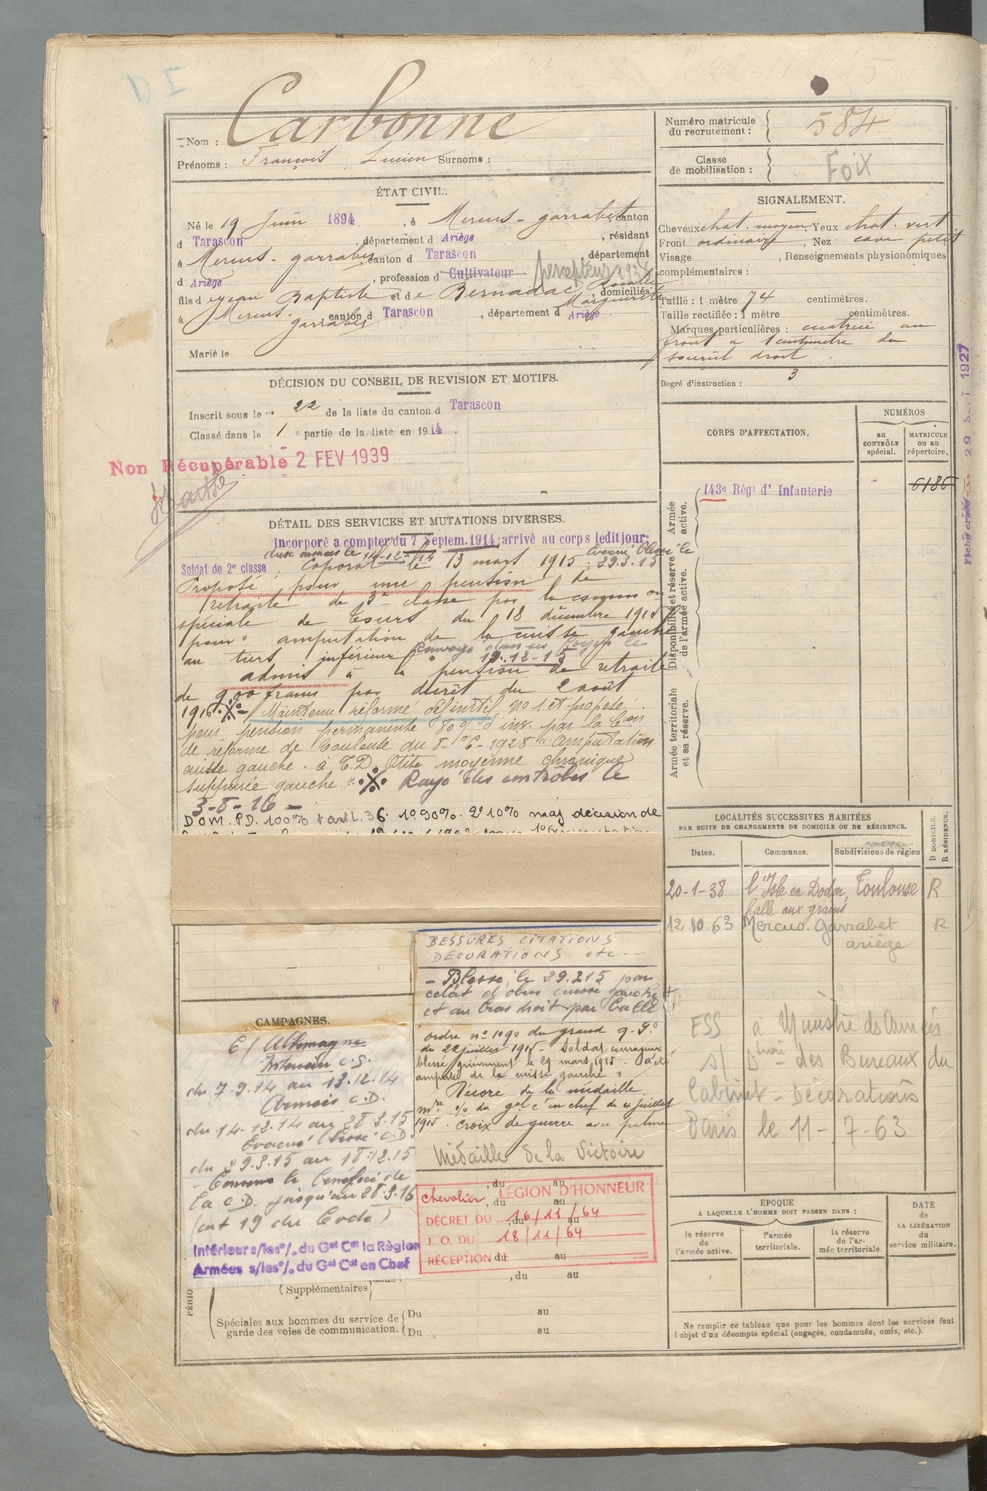 D I
Nom : Carbonne
Prénoms : François Lucien Surnoms :
Numéro matricule du recrutement : 584
Classe de mobilisation : Foix
ÉTAT CIVIL.
Né le 19 Juin 1894, à Mercus-garrabet, canton
d Tarascon, département d Ariège, résident
à Mercus-garrabet, canton d Tarascon, département
d Ariège, profession d Cultivateur percepteur
fils d Jean Baptiste et de Bernadac Marguerite, domiciliés
à Mercus-garrabet, canton d Tarascon, département d Ariège
Marié le
SIGNALEMENT.
Cheveux chat. moyen Yeux chat. vert
Front ordinaire, Nez cave petit
Visage , Renseignements physionomiques
complémentaires :
Taille : 1 mètre 74 centimètres.
Taille rectifiée : 1 mètre centimètres.
Marques particulières : cicatrice au
front à 1 centimètre du
sourcil droit.
Degré d'instruction : 3
DÉCISION DU CONSEIL DE REVISION ET MOTIFS.
Inscrit sous le n° 22 de la liste du canton d Tarascon
Classé dans la 1e partie de la liste en 1914.
Non Récupérable 2 FEV 1939
CORPS D'AFFECTATION.
NUMÉROS
AU CONTRÔLE spécial.
MATRICULE OU AU répertoire.
143e Régt d' Infanterie
6186
Armée active.
Disponibilité et réserve de l'armée active.
Armée territoriale et sa réserve.
29 1927
DÉTAIL DES SERVICES ET MUTATIONS DIVERSES.
Incorporé à compter du 7 Septem. 1914, arrivé au corps ledit jour;
aux armées le 14-12-14 Evacué blessé le
Soldat de 2e classe, Caporal le 13 mars 1915; 29.3.15
Proposé pour une pension de
retraite de 3e classe par la commission
spéciale de Tours du 18 décembre 1915
pour "amputation de la cuisse gauche
au tiers inférieur" Renvoyé dans ses foyers le
19.12.15
admis à la pension de retraite
de 900 francs par décret du 2 août
1916. Maintenu réformé définitif n° 1 et proposé
pour pension permanente 80% d'inv. par la Con
de réforme de Toulouse du 8-6-1928 "Amputation
cuisse gauche. à T.D. Otite moyenne chronique
suppurée gauche". Rayé des contrôles le
3-8-16
D.O.M. P.D. 100% + art L.36. 1° 90%. 2° 10% maj décision de
LOCALITÉS SUCCESSIVES HABITÉES
PAR SUITE DE CHANGEMENTS DE DOMICILE OU DE RÉSIDENCE.
Dates. Communes. Subdivisions de région
D DOMICILE. R RÉSIDENCE.
20-1-38 l'Isle en Dodon, Toulouse R
halle aux grains
12.10.63 Mercus. Garrabet R
ariège
ESS à Ministre des Armées
s/ Dtion des Bureaux du
Cabinet - Décorations
Paris le 11-7-63
CAMPAGNES.
C/ Allemagne
Intérieur C.S.
du 7.9.14 au 13.12.14
Armées C.D.
du 14.12.14 au 28.3.15
Evacué blessé C.D.
du 29.3.15 au 18.12.15
Conserve le bénéfice de
la C.D. jusqu'au 28.3.16
(art 19 du Code)
Intérieur s/les o/. du Gal Ct la Région
Armées s/les o/. du Gal Ct en Chef
BLESSURES CITATIONS
DECORATIONS etc
- Blessé, le 29.3.15 par
éclat d'obus cuisse gauche
et au bras droit par balle
ordre n° 1090 du grand q. g.
du 22 juillet 1915 - Soldat courageux
blessé grièvement le 29 mars 1915 a été
amputé de la cuisse gauche"
Décoré de la médaille
mre o/o du gal en chef du juillet
1915. Croix de guerre avec palme
Médaille de la Victoire
Chevalier, LÉGION D'HONNEUR
DÉCRET DU 16/11/64
J. O. DU 18/11/64
RÉCEPTION
du au
(Supplémentaires)
Spéciales aux hommes du service de garde des voies de communication.
Du au
Du au
ÉPOQUE
A LAQUELLE L'HOMME DOIT PASSER DANS :
la réserve de l'armée active.
l'armée territoriale.
la réserve de l'armée territoriale.
DATE de LA LIBÉRATION du service militaire.
Ne remplir ce tableau que pour les hommes dont les services font
l'objet d'un décompte spécial (engagés, condamnés, omis, etc.).